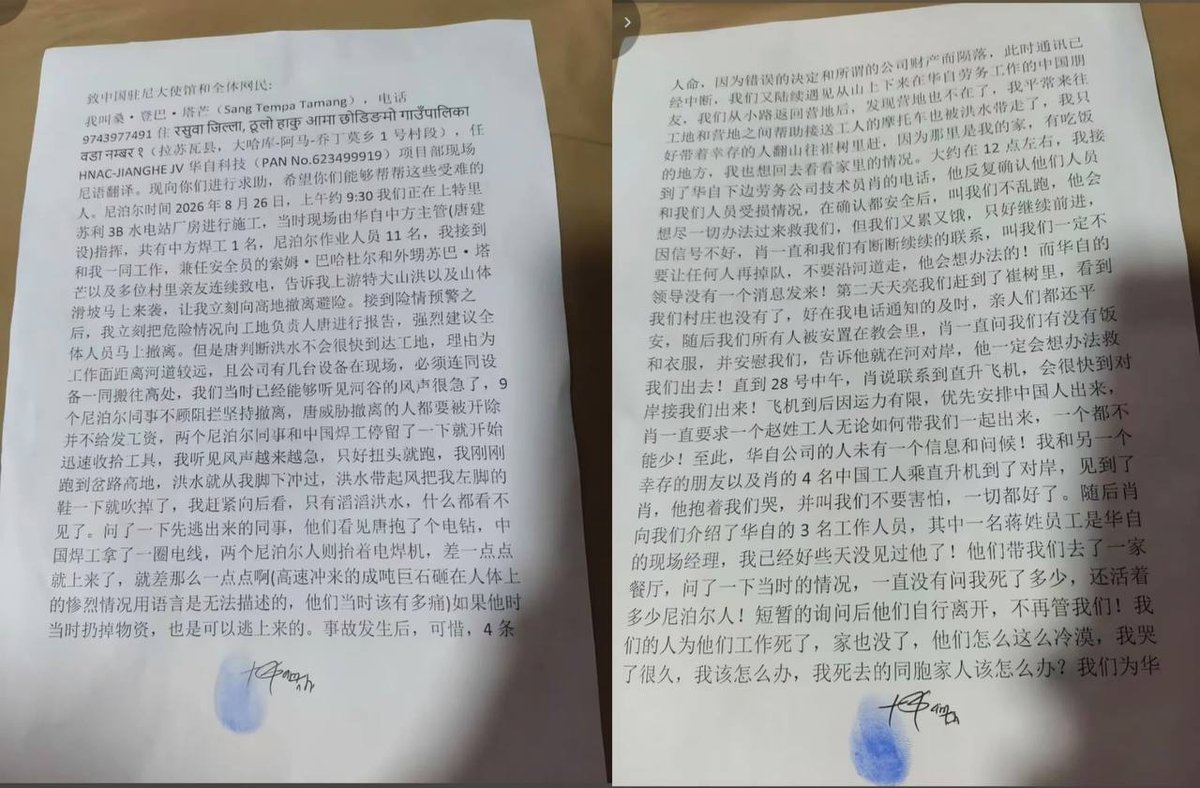 致中国驻尼大使馆和全体网民:
我叫桑·登巴·塔芒（Sang Tempa Tamang），电话
9743977491 住 रसुवा जिल्ला, ठूलो हाकु आमा छोदिङमो गाउँपालिका
वडा नम्बर १（拉苏瓦县，大哈库-阿马-乔丁莫乡 1 号村段），任
HNAC-JIANGHE JV 华自科技（PAN No.623499919）项目部现场
尼语翻译。现向你们进行求助，希望你们能够帮帮这些受难的
人。尼泊尔时间 2026 年 8 月 26 日，上午约 9:30 我们正在上特里
苏利 3B 水电站厂房进行施工，当时现场由华自中方主管(唐建
设)指挥，共有中方焊工 1 名，尼泊尔作业人员 11 名，我接到
和我一同工作，兼任安全员的索姆·巴哈杜尔和外甥苏巴·塔
芒以及多位村里亲友连续致电，告诉我上游特大山洪以及山体
滑坡马上来袭，让我立刻向高地撤离避险。接到险情预警之
后，我立刻把危险情况向工地负责人唐进行报告，强烈建议全
体人员马上撤离。但是唐判断洪水不会很快到达工地，理由为
工作面距离河道较远，且公司有几台设备在现场，必须连同设
备一同搬往高处，我们当时已经能够听见河谷的风声很急了，9
个尼泊尔同事不顾阻拦坚持撤离，唐威胁撤离的人都要被开除
并不给发工资，两个尼泊尔同事和中国焊工停留了一下就开始
迅速收拾工具，我听见风声越来越急，只好扭头就跑，我刚刚
跑到岔路高地，洪水就从我脚下冲过，洪水带起风把我左脚的
鞋一下就吹掉了，我赶紧向后看，只有滔滔洪水，什么都看不
见了。问了一下先逃出来的同事，他们看见唐抱了个电钻，中
国焊工拿了一圈电线，两个尼泊尔人则抬着电焊机，差一点点
就上来了，就差那么一点点啊(高速冲来的成吨巨石砸在人体上
的惨烈情况用语言是无法描述的，他们当时该有多痛)如果他时
当时扔掉物资，也是可以逃上来的。事故发生后，可惜，4 条
人命，因为错误的决定和所谓的公司财产而陨落，此时通讯已
经中断，我们又陆续遇见从山上下来在华自劳务工作的中国朋
友，我们从小路返回营地后，发现营地也不在了，我平常来往
工地和营地之间帮助接送工人的摩托车也被洪水带走了，我只
好带着幸存的人翻山往崔树里赶，因为那里是我的家，有吃饭
的地方，我也想回去看看家里的情况。大约在 12 点左右，我接
到了华自下边劳务公司技术员肖的电话，他反复确认他们人员
和我们人员受损情况，在确认都安全后，叫我们不乱跑，他会
想尽一切办法过来救我们，但我们又累又饿，只好继续前进，
因信号不好，肖一直和我们有断断续续的联系，叫我们一定不
要让任何人再掉队，不要沿河道走，他会想办法的！而华自的
领导没有一个消息发来！第二天天亮我们赶到了崔树里，看到
我们村庄也没有了，好在我电话通知的及时，亲人们都还平
安，随后我们所有人被安置在教会里，肖一直问我们有没有饭
和衣服，并安慰我们，告诉他就在河对岸，他一定会想办法救
我们出去！直到 28 号中午，肖说联系到直升飞机，会很快到对
岸接我们出来！飞机到后因运力有限，优先安排中国人出来，
肖一直要求一个赵姓工人无论如何带我们一起出来，一个都不
能少！至此，华自公司的人未有一个信息和问候！我和另一个
幸存的朋友以及肖的 4 名中国工人乘直升机到了对岸，见到了
肖，他抱着我们哭，并叫我们不要害怕，一切都好了。随后肖
向我们介绍了华自的 3 名工作人员，其中一名蒋姓员工是华自
的现场经理，我已经好些天没见过他了！他们带我们去了一家
餐厅，问了一下当时的情况，一直没有问我死了多少，还活着
多少尼泊尔人！短暂的询问后他们自行离开，不再管我们！我
们的人为他们工作死了，家也没了，他们怎么这么冷漠，我哭
了很久，我该怎么办，我死去的同胞家人该怎么办？我们为华